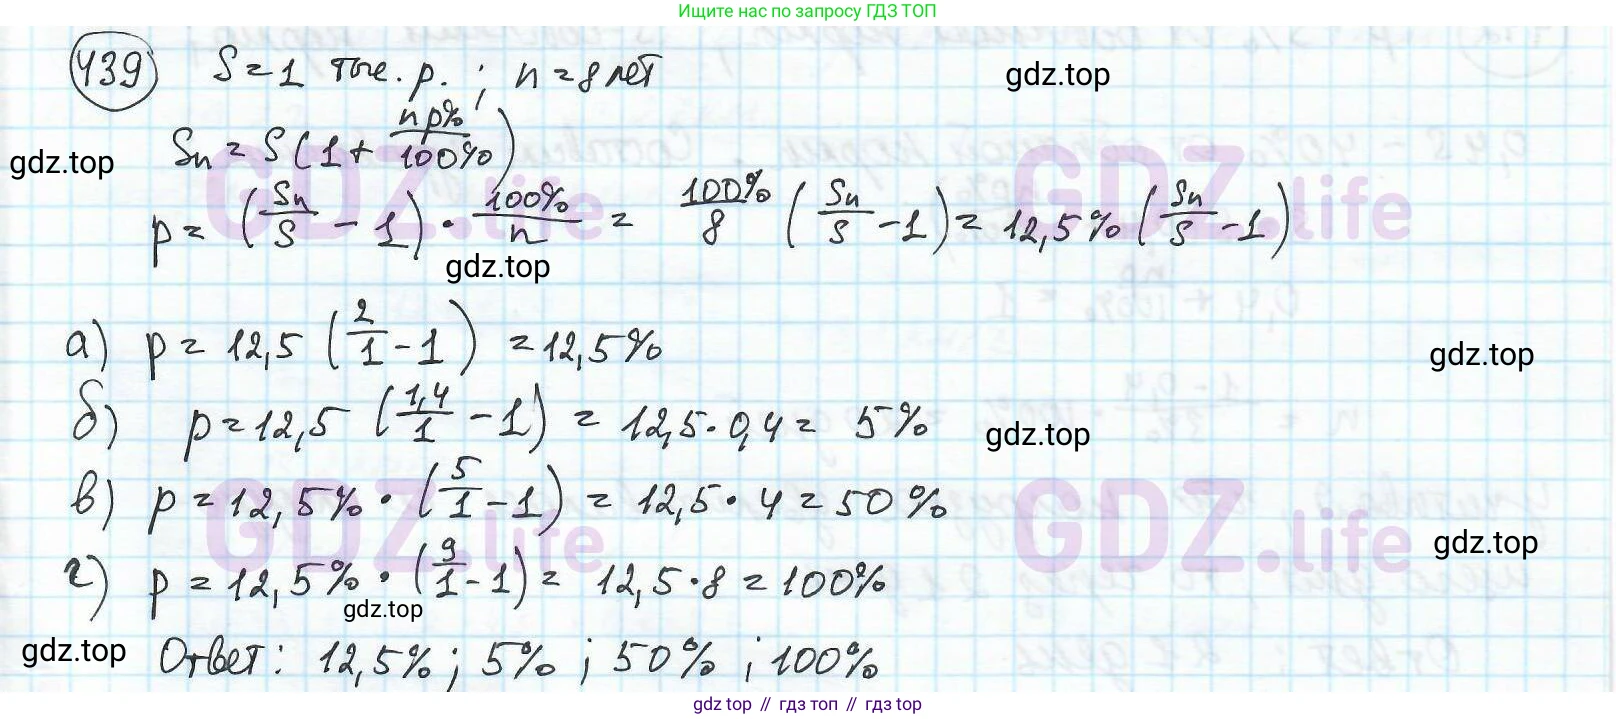 Ищите нас по запросу ГДЗ ТОП
439 S = 1 тыс. р. ; n = 8 лет
gdz.top
Sn = S(1 + np%/100%)
gdz.top
GDZ.life GDZ.life
p = (Sn/S - 1) · 100%/n = 100%/8 (Sn/S - 1) = 12,5% (Sn/S - 1)
gdz.top
а) p = 12,5 (2/1 - 1) = 12,5%
gdz.top
б) p = 12,5 (1,4/1 - 1) = 12,5 · 0,4 = 5%
gdz.top
в) p = 12,5% · (5/1 - 1) = 12,5 · 4 = 50%
GDZ.life GDZ.life
gdz.top
г) p = 12,5% · (9/1 - 1) = 12,5 · 8 = 100%
gdz.top
gdz.top
Ответ: 12,5% ; 5% ; 50% ; 100%
gdz top // гдз топ // гдз top